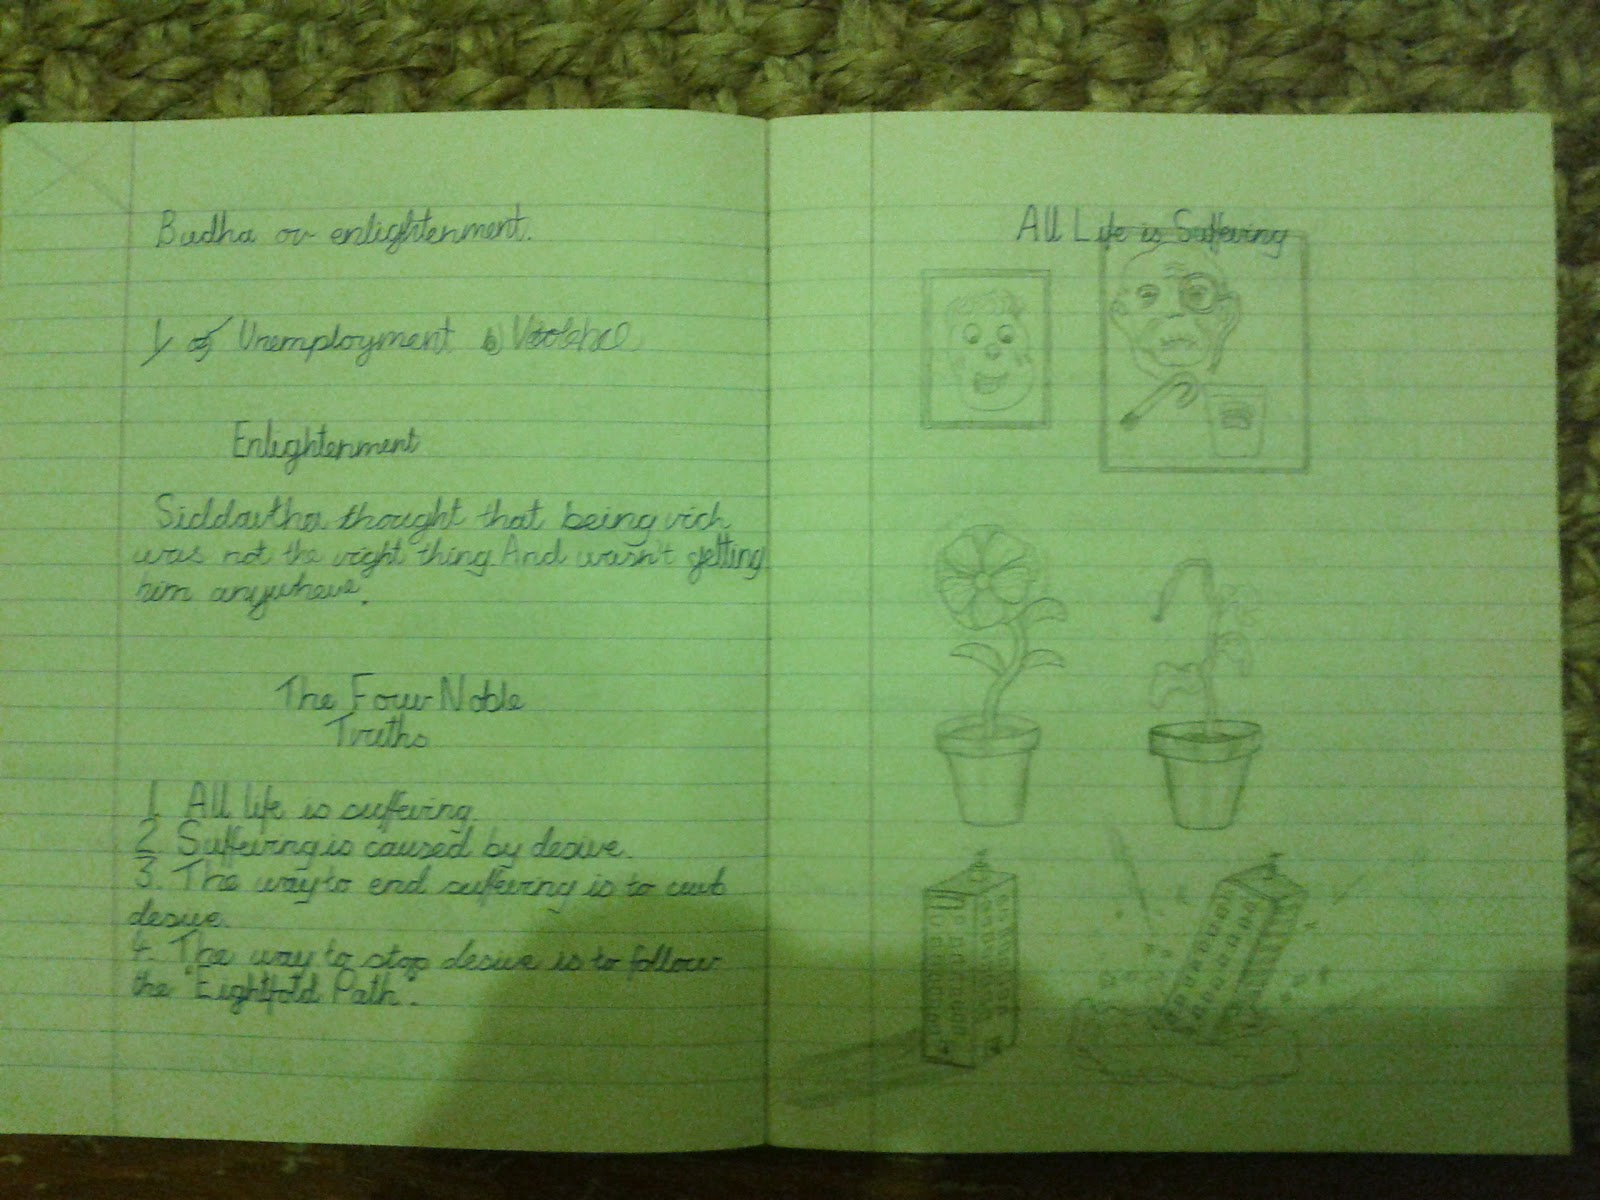 Budha or enlightenment.
1) a) Unemployment b)
Enlightenment
Siddartha thought that being rich
was not the right thing. And wasn't getting
him anywhere.
The Four Noble
Truths
1. All life is suffering.
2. Suffering is caused by desire.
3. The way to end suffering is to curb
desire.
4. The way to stop desire is to follow
the "Eightfold Path".
All Life is Suffering